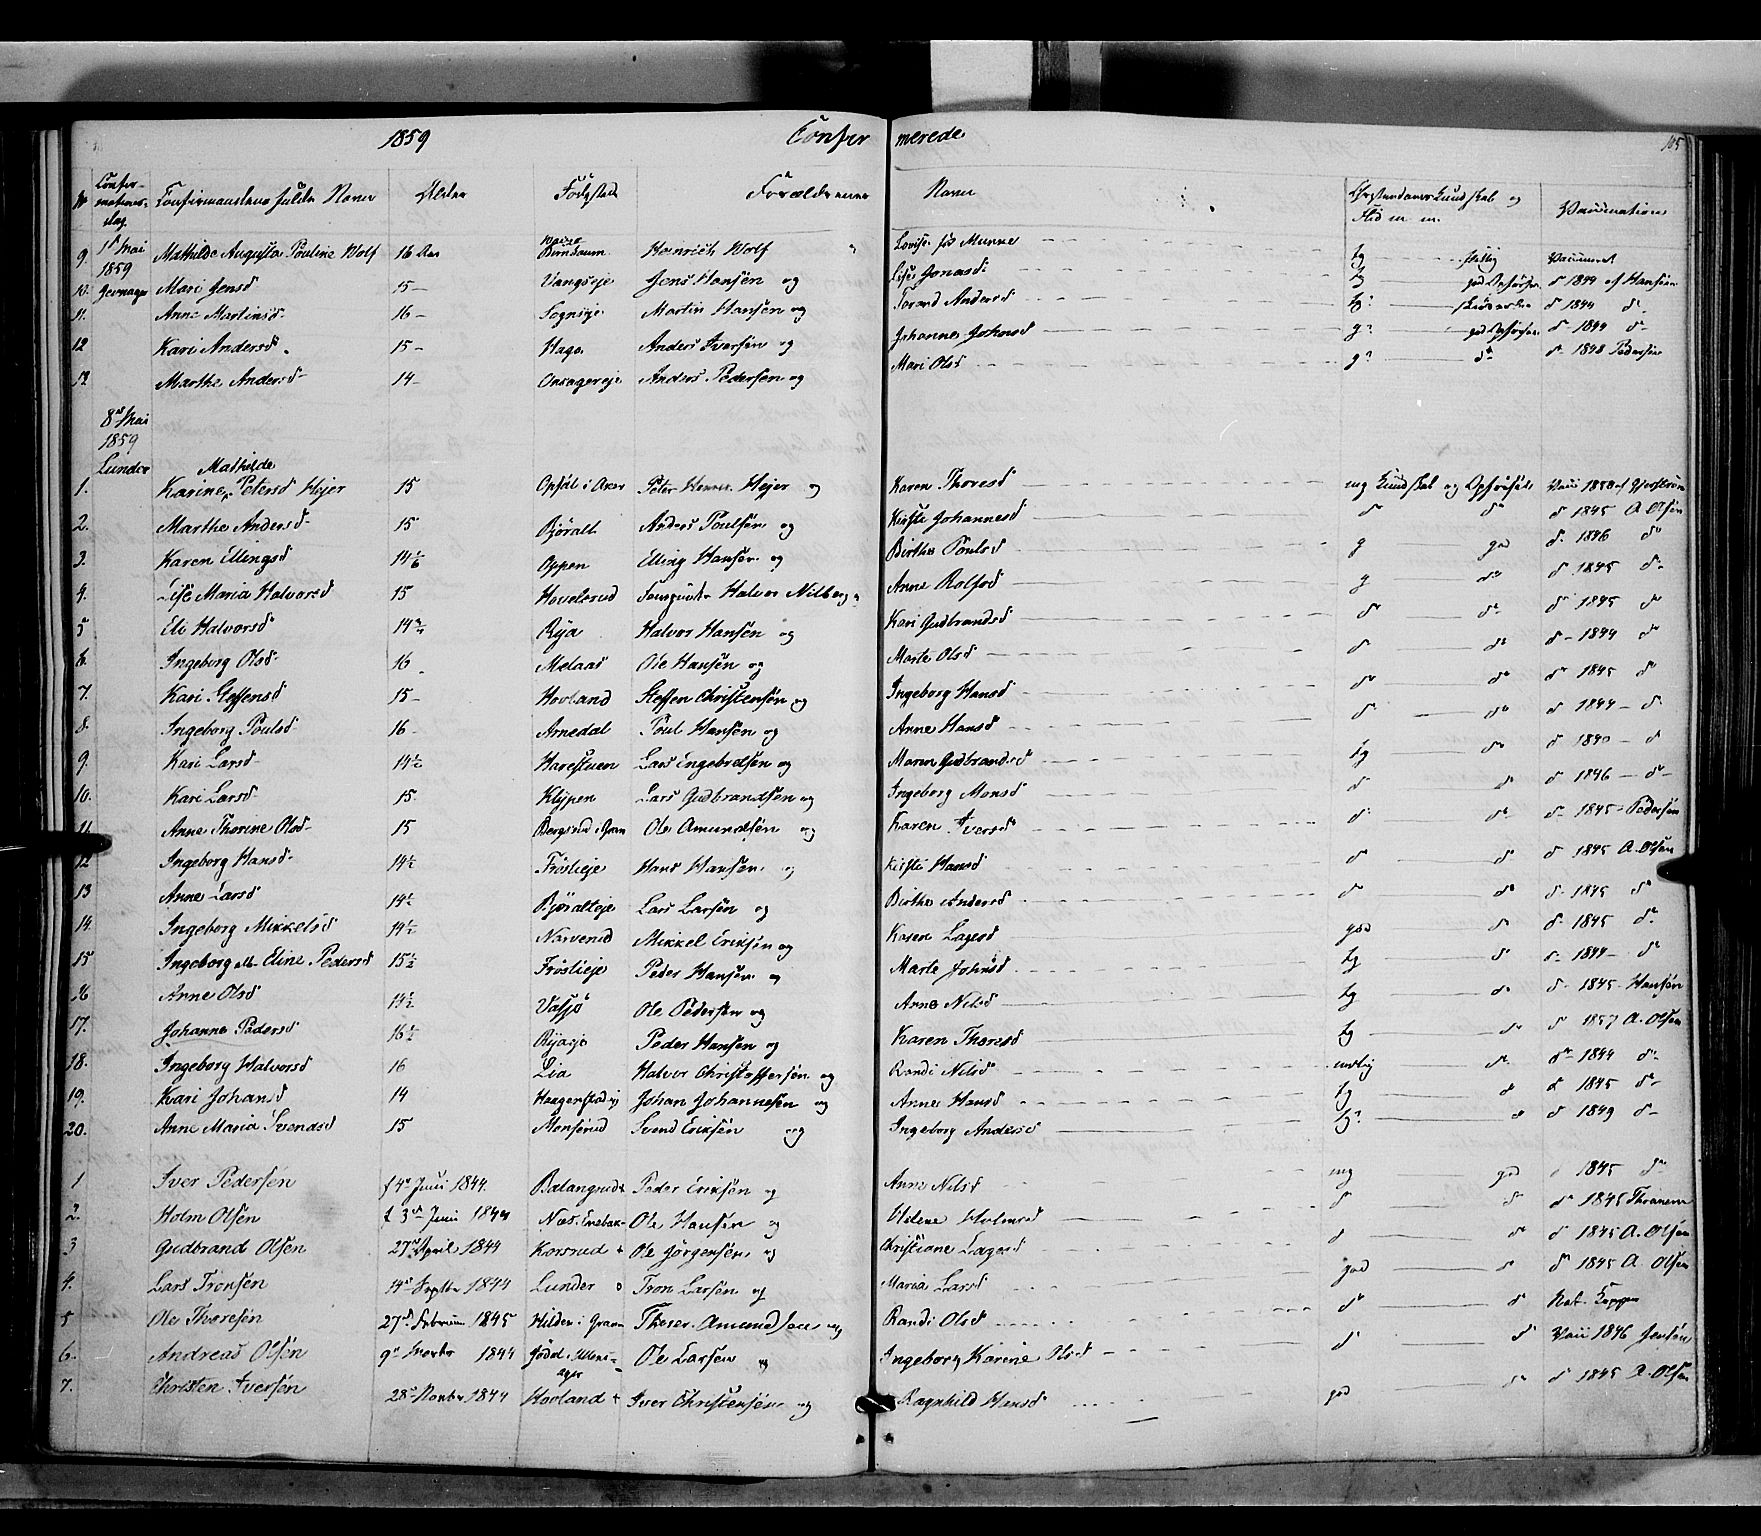 1859 Confirmerede 105
No Confirmationsdag Confirmantens fulde Navn Alder Fødested Forældrenes Navne Christendoms Kundskab og Flid m. m. Vaccination
1st Mai 1859 Jevnager
9 Mathilde Augusta Pouline Wolf 16 Aar Heinrich Wolf Lovise Munne tg flittig Vaccineret
10. Mari Jensd 15 — Vangseje Jens Hansen og Jonasd tg d 1844 af Hansen
11. Anne Martinsd 16 — Sognseje Martin Hansen og Torand Andersd tg d 1844 do
12 Kari Andersd 15 — Hage Anders Iversen og Johanne Johnsd g d 1844 do
13 Marthe Andersd 14 — Onsagereje Anders Pedersen og Mari Olsd g do d 1848 Pedersen
8de Mai 1859 Lunder
1. Karine Mathilde Petersd Hejer 15 Opsal i Aker Peter Hejer og Karen Thoresd mg Kundskab og Opførsel Vacc 1850 af
2. Marthe Andersd 15 Bjøralt Anders Poulsen og Kirsti Johannesd do do d 1845 A. Olsen
3. Karen Ellingsd 14 Oppen Elling Hansen og Birthe Poulsd g god d. 1846 do
4. Lise Maria Halvorsd 15 Hovelsrud Halvor Nilsen Anne Rolfsd g do d 1845 do
5 Eli Halvorsd 14 Rya Halvor Hansen og Kari Gudbrandsd do do d 1845 do
6. Ingeborg Olsd 16 Melaas Ole Hansen og Marte Olsd do do d 1844 do
7. Kari Steffensd 15 — Hovland Steffen Christensen og Ingeborg Hansd do do d 1845 do
8. Ingeborg Poulsd 16 Arnedal Poul Hansen og Anne Hansd do do d 1844 — d
9. Kari Larsd 14½ Harestuen Lars Engebretsen og Maren Gudbrandsd tg do d 1840 — d
10. Kari Larsd 15 Klypen Lars Gudbrandsen og Ingeborg Monsd d do d 1846 — do
11. Anne Thorine Olsd 15 Bergsrud i Gran Ole Amundsen og Karen Iversd d do d 1845 Pedersen
12 Ingeborg Hansd 14½ Frøslieje Hans Hansen og Kirsti Hansd do do d 1845 A. Olsen
13 Anne Larsd 14½ Bjøralteje Lars Larsen og Birthe Andersd do do d 1845 do
14. Ingeborg Mikkelsd 14½ Narverud Mikkel Eriksen og Karen Lagesd god do d 1845 do
15 Ingeborg Eline Pedersd 15½ Frøslieje Peder Hansen og Marte Johnsd tg do d 1844 — do
16 Anne Olsd 14½ Valsjø Ole Pedersen og Anne Nilsd tg do d 1845 Hansen
17. Johanne Pedersd 16½ Ryaeje Peder Hansen og Karen Thoresd tg do d 1857 A. Olsen
18. Ingeborg Halvorsd 16 Lia Halvor Christoffersen og Randi Nilsd do d 1844 do
19. Kari Johansd 14 Johan Johannesen og Anne Hansd tg do d 1845 do
20. Anne Maria Svendsd 15 Monserud Svend Eriksen og Ingeborg Andersd tg do d 1849 do
1 Iver Pedersen f 4de Juni 1844. Peder Eriksen og Anne Nilsd mg god 1845 do
2. Holm Olsen f 3de Juni 1844 Næs. Enebak Ole Hansen og Helene Holmsd d do d 1845 Thranem
3 Gudbrand Olsen 27de April 1844 Korsrud Ole Jørgensen og Christiane Lagesd d do d 1845 A. Olsen
4. Lars Tronsen 14de Septbr 1844 Lunder Tron Larsen og Maria Larsd god do d 1845 A. Olsen
5 Ole Thoresen 27de Februar 1845 Hilden i Gran Thore Amundsen og Randi Olsd do d Nat. Kopper
6. Andreas Olsen 9de 1844 Ole Larsen og Ingeborg Karine Olsd d d Vacc 1846 Jensen
7. Christen Iversen 28de Novbr 1844 Hovland Iver Christensen og Ragnhild Hansd god do d 1845 A. Olsen